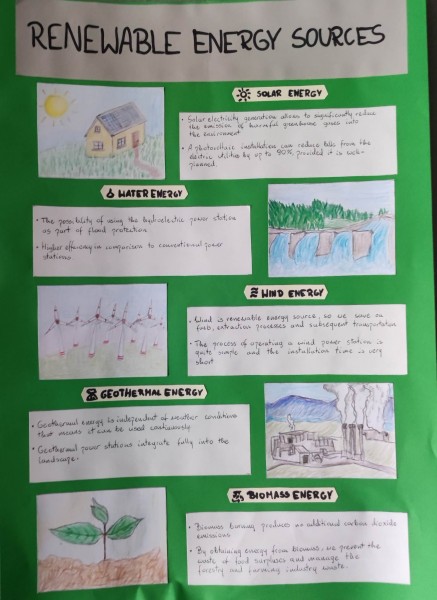 RENEWABLE ENERGY SOURCES
SOLAR ENERGY
• Solar electricity generation allows to significantly reduce
the emission of harmful greenhouse gases into
the environment
• A photovoltaic installation can reduce bills from the
electric utilities by up to 90%, provided it is well-
planned.
WATER ENERGY
• The possibility of using the hydroelectric power station
as part of flood protection
• Higher efficiency in comparison to conventional power
stations
WIND ENERGY
• Wind is renewable energy source, so we save on
fuel, extraction processes and subsequent transportation
• The process of operating a wind power station is
quite simple and the installation time is very
short
GEOTHERMAL ENERGY
• Geothermal energy is independent of weather conditions
that means it can be used continuously
• Geothermal power stations integrate fully into the
landscape.
BIOMASS ENERGY
• Biomass burning produces no additional carbon dioxide
emissions
• By obtaining energy from biomass, we prevent the
waste of food surpluses and manage the
forestry and farming industry waste.